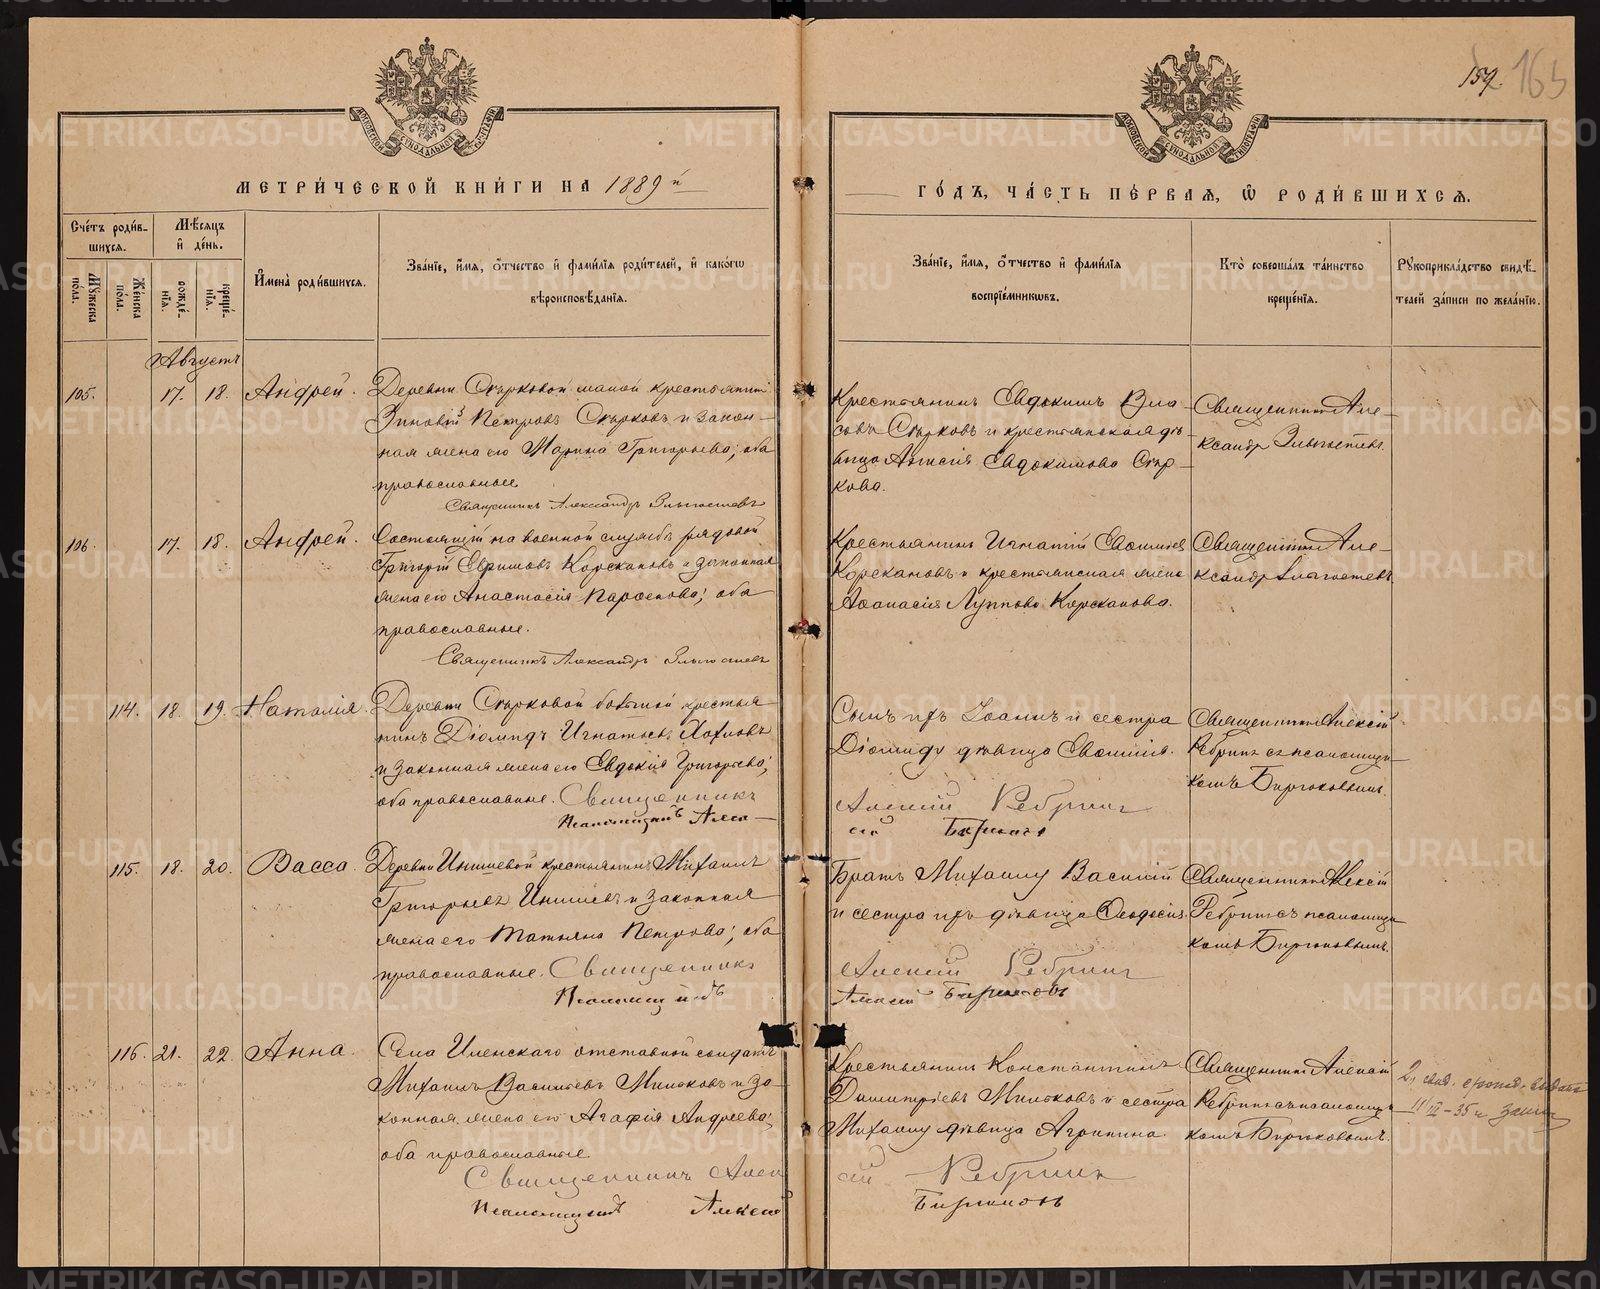 157 163
МОСКОВСКОЙ СѴНОДАЛЬНОЙ ТИПОГРАФІИ
МОСКОВСКОЙ СѴНОДАЛЬНОЙ ТИПОГРАФІИ
МЕТРИ́ЧЕСКОЙ КНИ́ГИ НА 1889й
ГО́ДЪ, ЧА́СТЬ ПЕ́РВАЯ, Ѡ РОДИ́ВШИХСЯ.
Сче́тъ роди́в-
шихся.
Мꙋ́жеска по́ла.
Же́нска по́ла.
Мѣ́сяцъ
и҆ де́нь.
рожде́-
нїя.
креще́-
нїя.
И҆мена̀ роди́вшихся.
Зва́нїе, и҆́мя, ѻ҆́тчество и҆ фами́лїя роди́телей, и҆ како́гѡ
вѣроисповѣ́данїя.
Зва́нїе, и҆́мя, ѻ҆́тчество и҆ фами́лїя
воспрїе́мникѡвъ.
Кто̀ соверша́лъ та́инство
креще́нїя.
Рꙋкоприкла́дство свидѣ́-
телей за́писи по жела́нїю.
Августъ
105. 17. 18. Андрей.
Деревни Сѣрковой малой крестьянинъ
Зиновій Петровъ Сѣрковъ и закон-
ная жена его Марина Григорьева; оба
православные
Священникъ Александръ
Крестьянинъ Евдокимъ Вла-
совъ Сѣрковъ и крестьянская дѣ-
вица Евдокимова Сѣр-
кова.
Священникъ Але-
ксандръ
106. 17. 18. Андрей.
Состоящій на военной службѣ рядовой
Григорій Корекановъ и законная
жена его Анастасія оба
православные.
Священникъ Александръ
Крестьянинъ Игнатій
Корекановъ и крестьянская жена
Аѳанасія Луппова Кореканова.
Священникъ Але-
ксандръ
114. 18. 19. Наталія.
Деревни Сѣрковой большой крестья
нинъ Діомидъ Игнатьевъ Хохловъ
и законная жена его Евдокія Григорьева;
оба православные. Священникъ
Псаломщикъ Алек-
Сынъ ихъ Іоаннъ и сестра
Діомиду дѣвица Евѳимія.
Алексій Ребринъ
сій Бирюковъ
Священникъ Алексій
Ребринъ съ псаломщи-
комъ Бирюковымъ.
115. 18. 20. Васса.
Деревни крестьянинъ Михаилъ
Григорьевъ и законная
жена его Татьяна Петрова; оба
православные. Священникъ
Псаломщикъ
Братъ Михаилу Василій
и сестра ихъ дѣвица Ѳеодосія.
Алексій Ребринъ
Алексій Бирюковъ
Священникъ Алексій
Ребринъ съ псаломщи-
комъ Бирюковымъ.
116. 21. 22. Анна.
Села Иленскаго отставной солдатъ
Михаилъ Васильевъ Милюковъ и за-
конная жена его Агафія Андреева;
оба православные
Священникъ Алек
Псаломщикъ Алексій
Крестьянинъ Константинъ
Димитріевъ Милюковъ и сестра
Михаилу дѣвица Агрипина.
сій Ребринъ
Бирюковъ
Священникъ Алексій
Ребринъ съ псаломщи-
комъ Бирюковымъ.